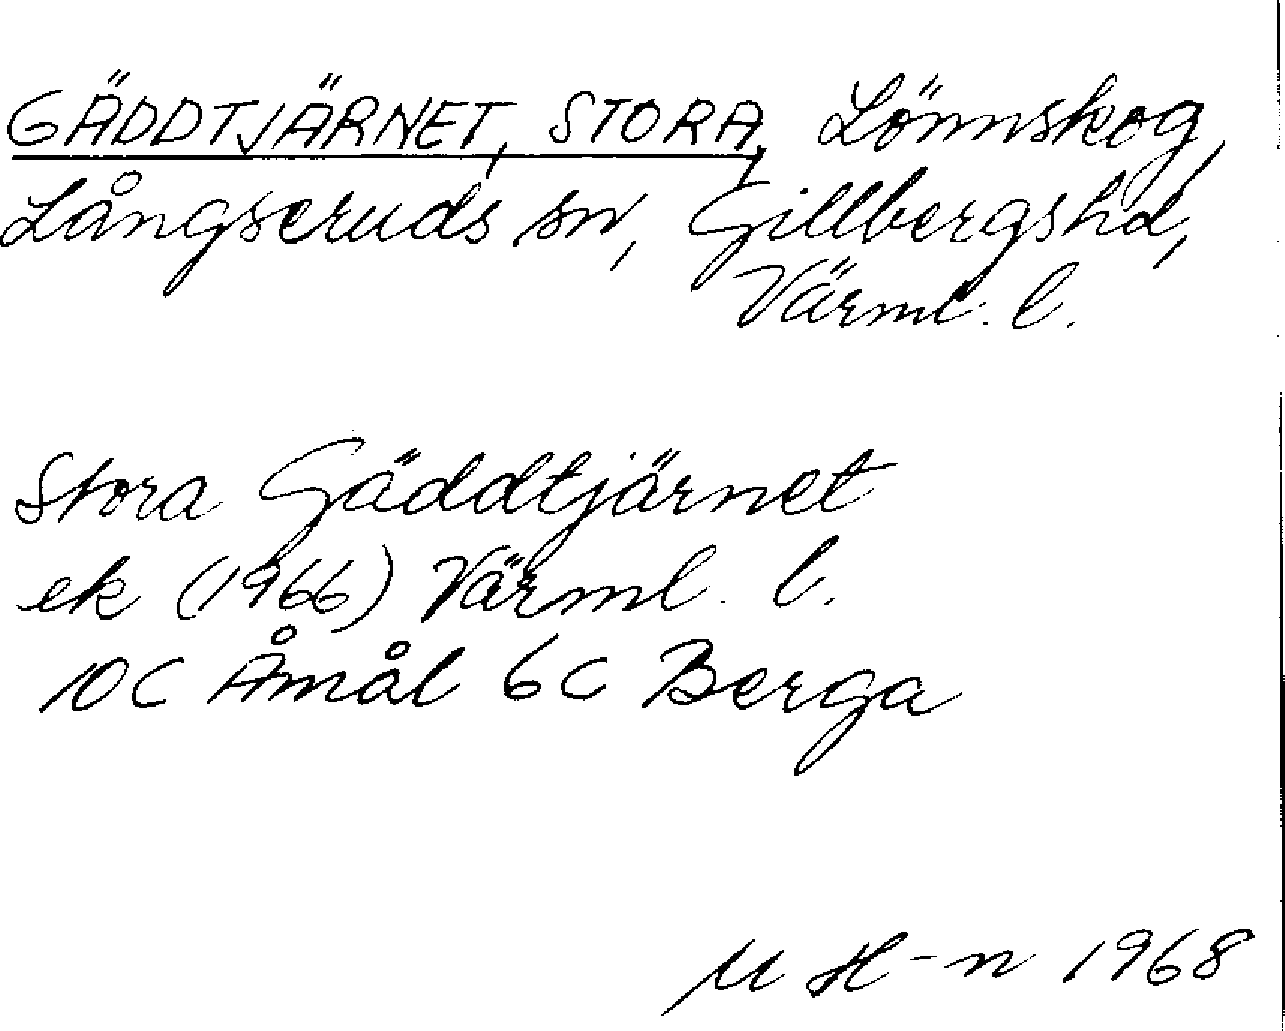 GÄDDTJÄRNET, STORA, Lönnskog,
Långseruds sn, Gillbergshd,
Värml. l.
Stora Gäddtjärnet
ek (1966) Värml. l.
10C Åmål 6c Berga
M H-n 1968